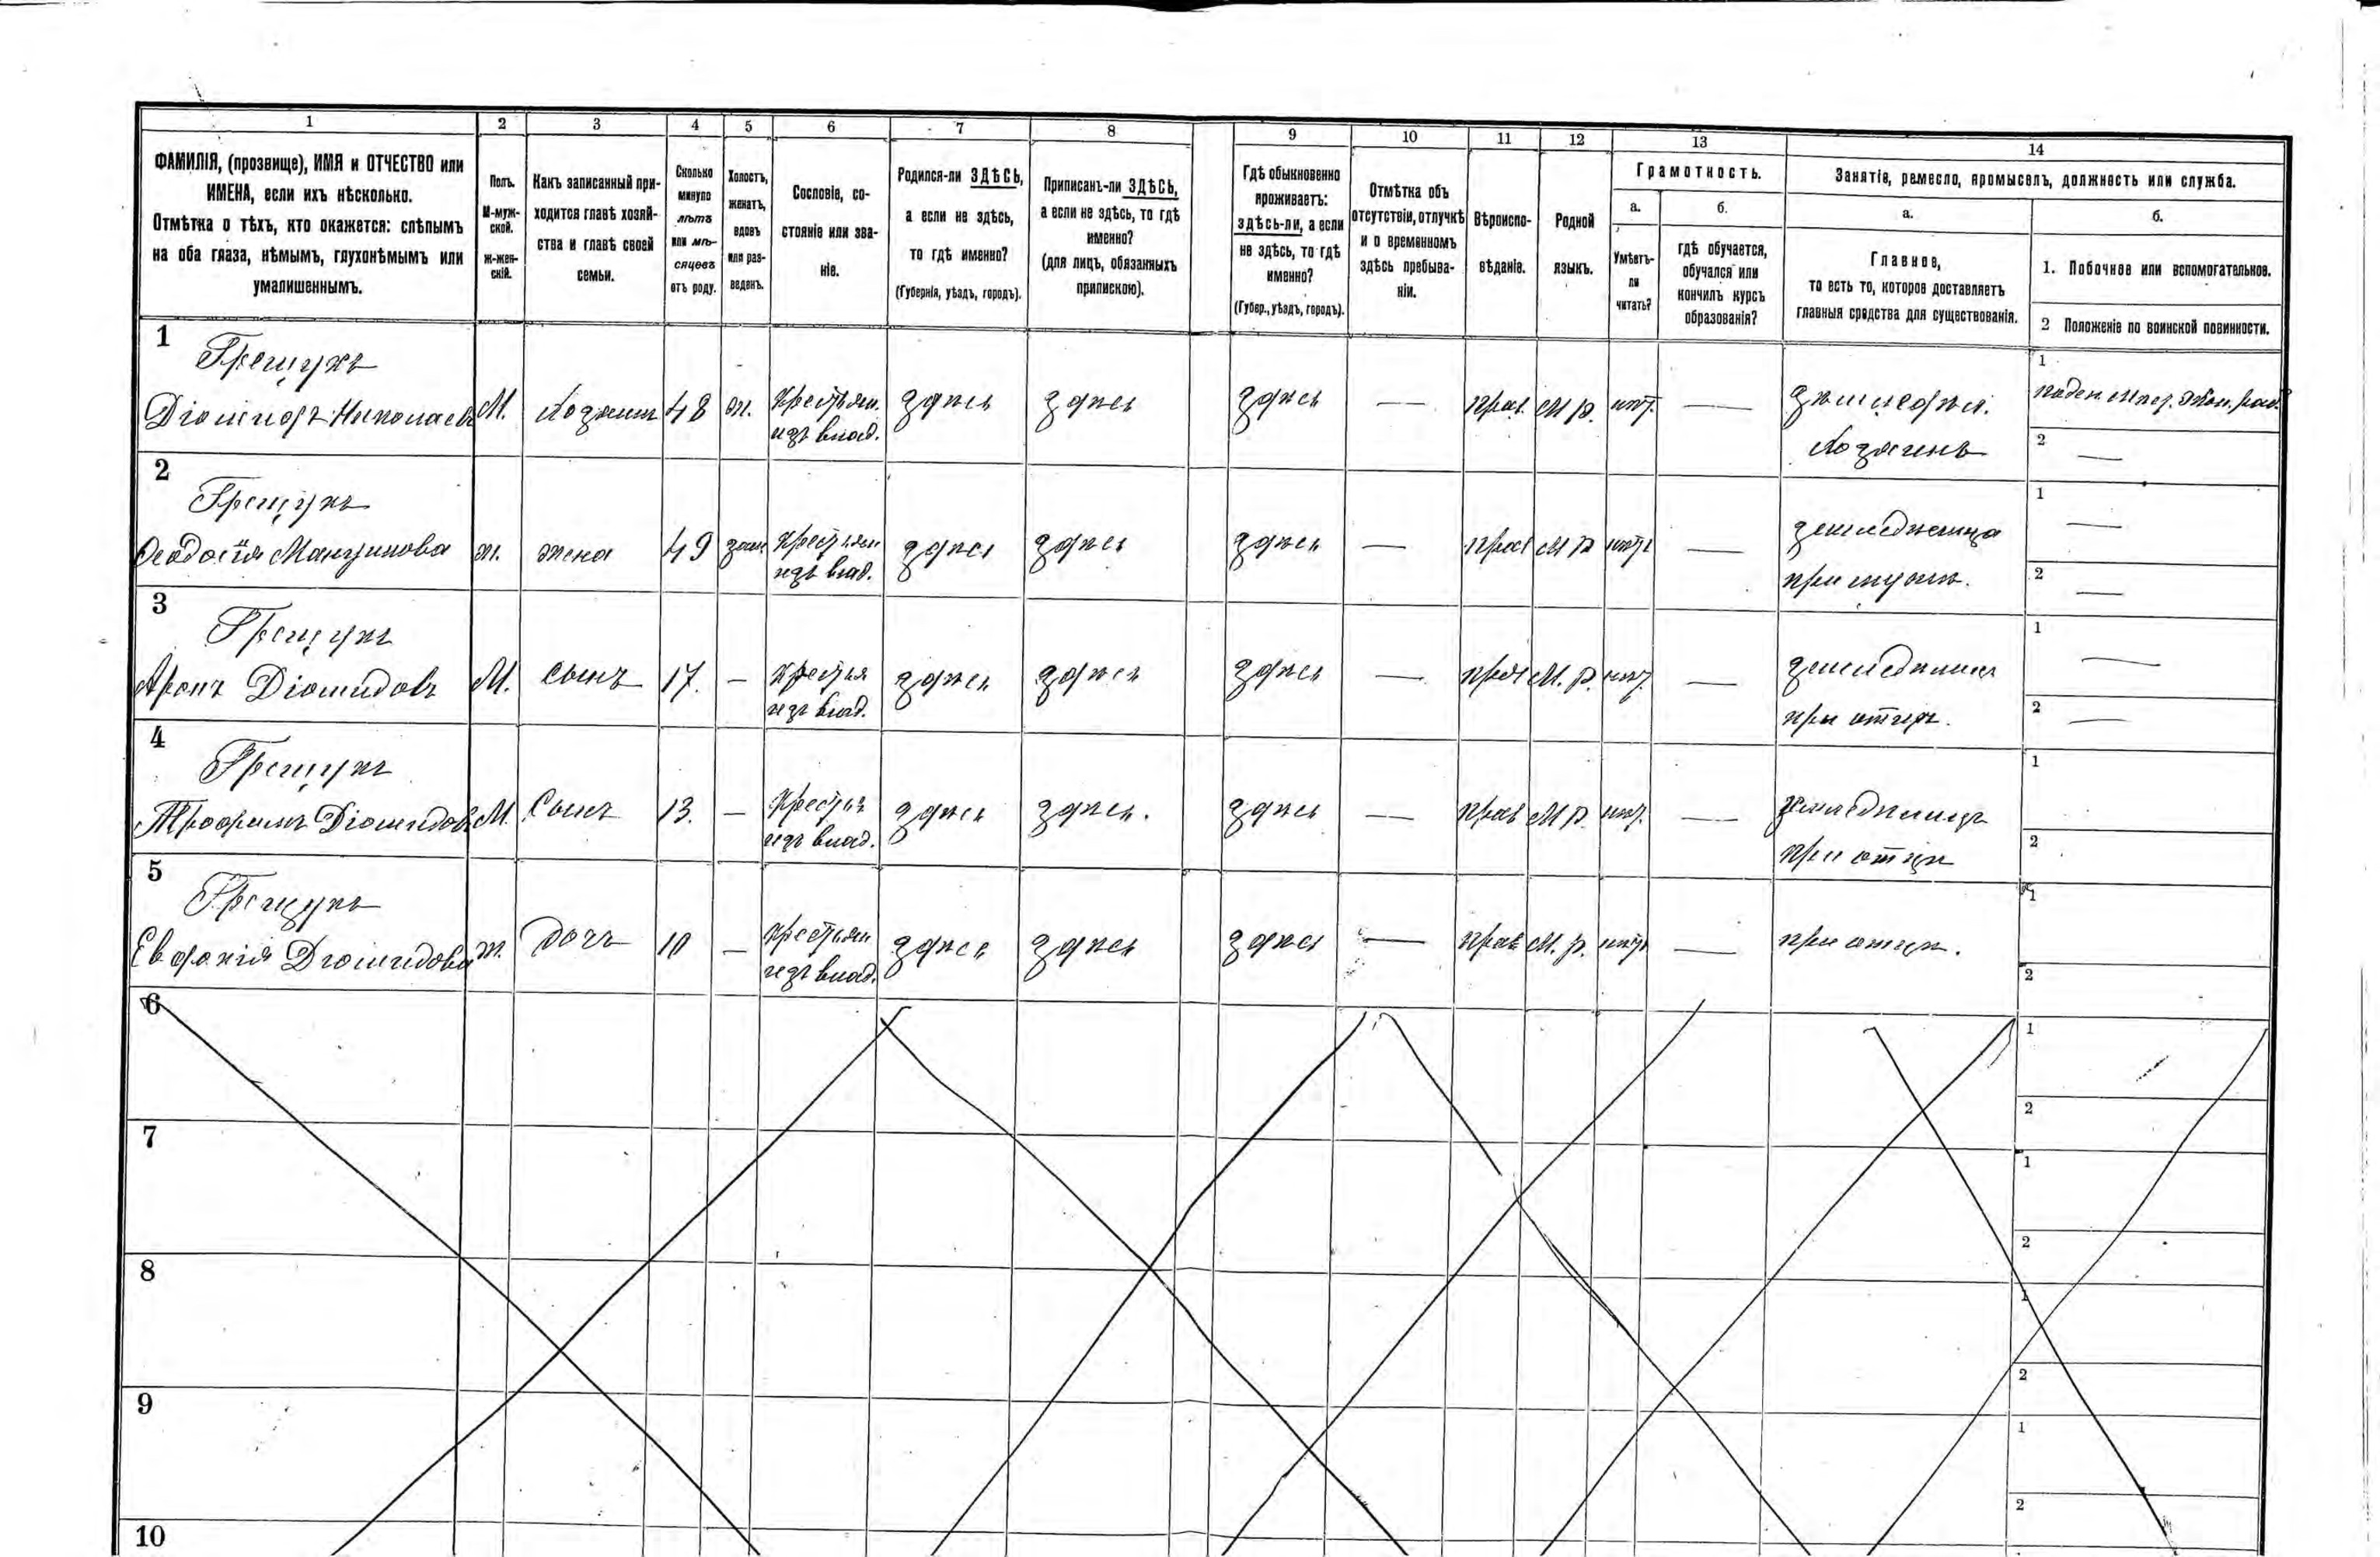 1 2 3 4 5 6 7 8 9 10 11 12 13 14
ФАМИЛІЯ, (прозвище), ИМЯ и ОТЧЕСТВО или
ИМЕНА, если ихъ нѣсколько.
Отмѣтка о тѣхъ, кто окажется: слѣпымъ
на оба глаза, нѣмымъ, глухонѣмымъ или
умалишеннымъ.
Полъ.
М-муж-
ской.
ж-жен-
скій.
Какъ записанный при-
ходится главѣ хозяй-
ства и главѣ своей
семьи.
Сколько
минуло
лѣтъ
или мѣ-
сяцевъ
отъ роду.
Холостъ,
женатъ,
вдовъ
или раз-
веденъ.
Сословіе, со-
стояніе или зва-
ніе.
Родился-ли ЗДѢСЬ,
а если не здѣсь,
то гдѣ именно?
(Губернія, уѣздъ, городъ).
Приписанъ-ли ЗДѢСЬ,
а если не здѣсь, то гдѣ
именно?
(для лицъ, обязанныхъ
припискою).
Гдѣ обыкновенно
проживаетъ:
здѣсь-ли, а если
не здѣсь, то гдѣ
именно?
(Губер., уѣздъ, городъ).
Отмѣтка объ
отсутствіи, отлучкѣ
и о временномъ
здѣсь пребыва-
ніи.
Вѣроиспо-
вѣданіе.
Родной
языкъ.
Грамотность.
а.
Умѣетъ-
ли
читать?
б.
гдѣ обучается,
обучался или
кончилъ курсъ
образованія?
Занятіе, ремесло, промыселъ, должность или служба.
а.
Главное,
то есть то, которое доставляетъ
главныя средства для существованія.
б.
1. Побочное или вспомогательное.
2 Положеніе по воинской повинности.
1
Грещукъ
Діомидъ Николаевъ М. Хозяин 48 ж. крестьян. здѣсь здѣсь здѣсь — прав. М р. нѣт. — земледѣл. 1
изъ влад. Хозяинъ 2 —
2
Грещукъ
Феодосія ж. жена 49 зам. крестьян здѣсь здѣсь здѣсь — прав М р нѣт — земледѣлица 1 —
изъ влад. при мужѣ. 2 —
3
Грещукъ
Діомидовъ М. сынъ 17. — крестья здѣсь здѣсь здѣсь — прав М. р. нѣт. — земледѣлец 1 —
изъ влад. при отцѣ. 2 —
4
Грещукъ
Трофимъ Діомидов М. Сынъ 13. — крестья здѣсь здѣсь. здѣсь — прав М р. нѣт. — земледѣлецъ 1
изъ влад. при отцѣ 2
5
Грещукъ
Діомидова ж. дочь 10 — крестьян здѣсь здѣсь здѣсь — прав М. р. нѣт — при отцѣ. 1
изъ влад. 2
6 1
2
7 1
2
8 1
2
9 1
2
10